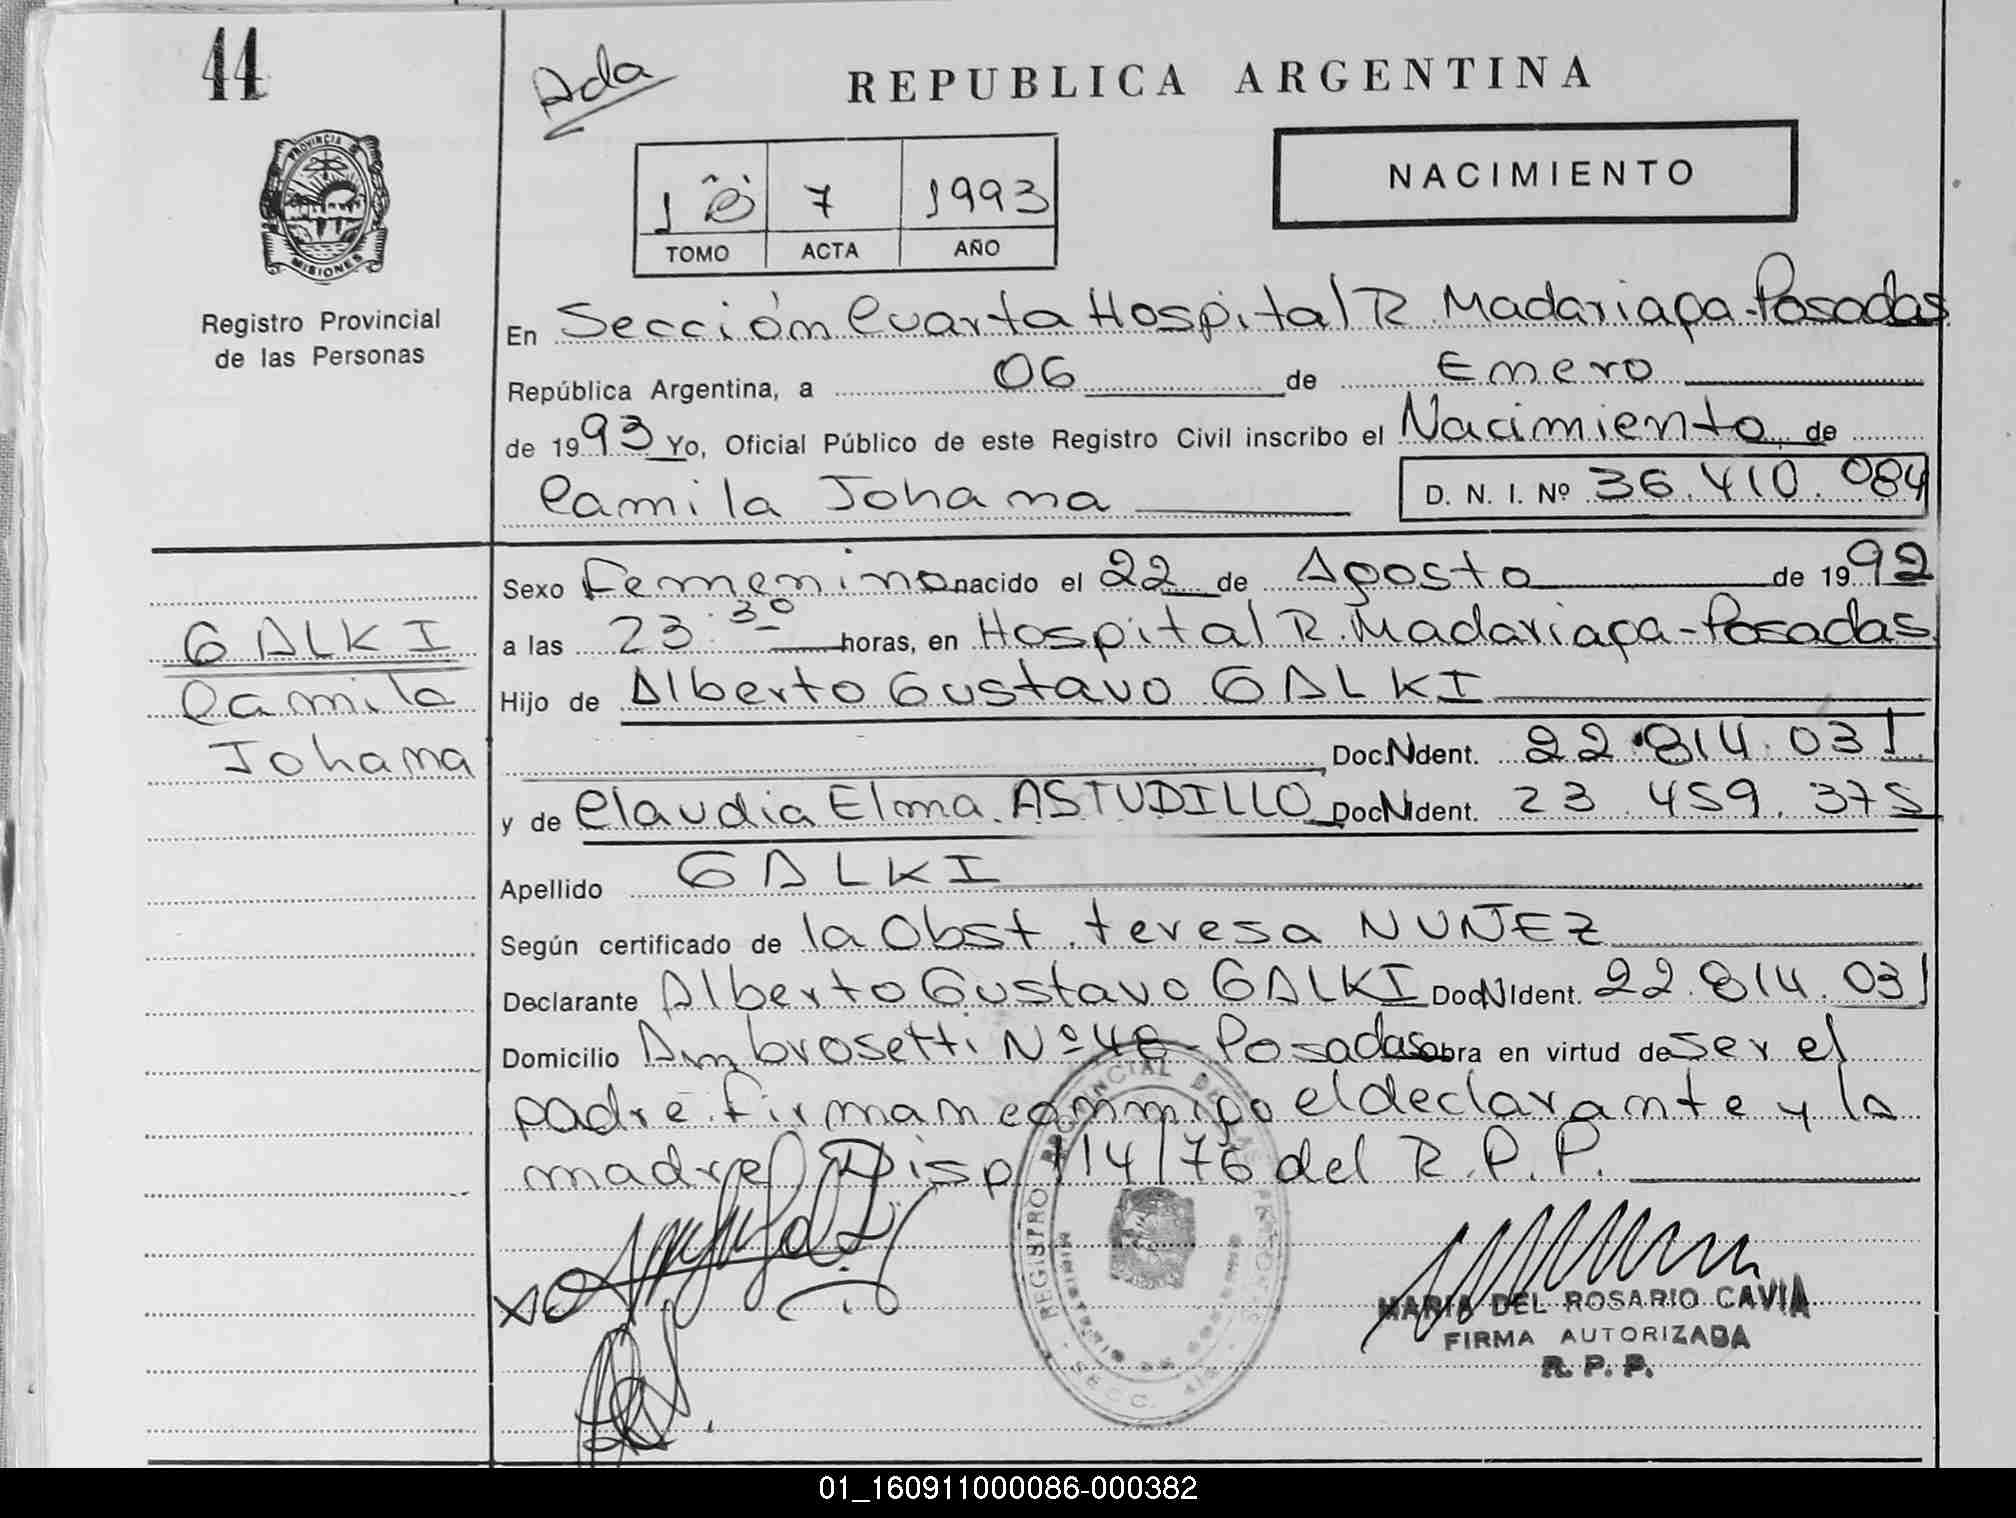 44
Ada
REPUBLICA ARGENTINA
PROVINCIA DE
MISIONES
Registro Provincial
de las Personas
1 7 1993
TOMO ACTA AÑO
NACIMIENTO
En Sección Cuarta Hospital R. Madariaga-Posadas
República Argentina, a 06 de Enero
de 1993 Yo, Oficial Público de este Registro Civil inscribo el Nacimiento de
Camila Johana D. N. I. Nº 36.410.084
Sexo Femenino nacido el 22 de Agosto de 1992
a las 23:30 horas, en Hospital R. Madariaga-Posadas
Hijo de Alberto Gustavo GALKI
Doc. Ident. 22.814.031
y de Claudia Elma ASTUDILLO Doc. Ident. 23.459.375
Apellido GALKI
Según certificado de la Obst. teresa NUÑEZ
Declarante Alberto Gustavo GALKI Doc. Ident. 22.814.031
Domicilio Ambrosetti Nº 48 - Posadas obra en virtud de ser el
padre. firman conmigo el declarante y la
madre Disp. 114/76 del R.P.P.
GALKI
Camila
Johana
REGISTRO PROVINCIAL DE LAS PERSONAS
MINISTERIO DE GOBIERNO
SECC. 4ta.
MARIA DEL ROSARIO CAVIA
FIRMA AUTORIZADA
R. P. P.
01_160911000086-000382